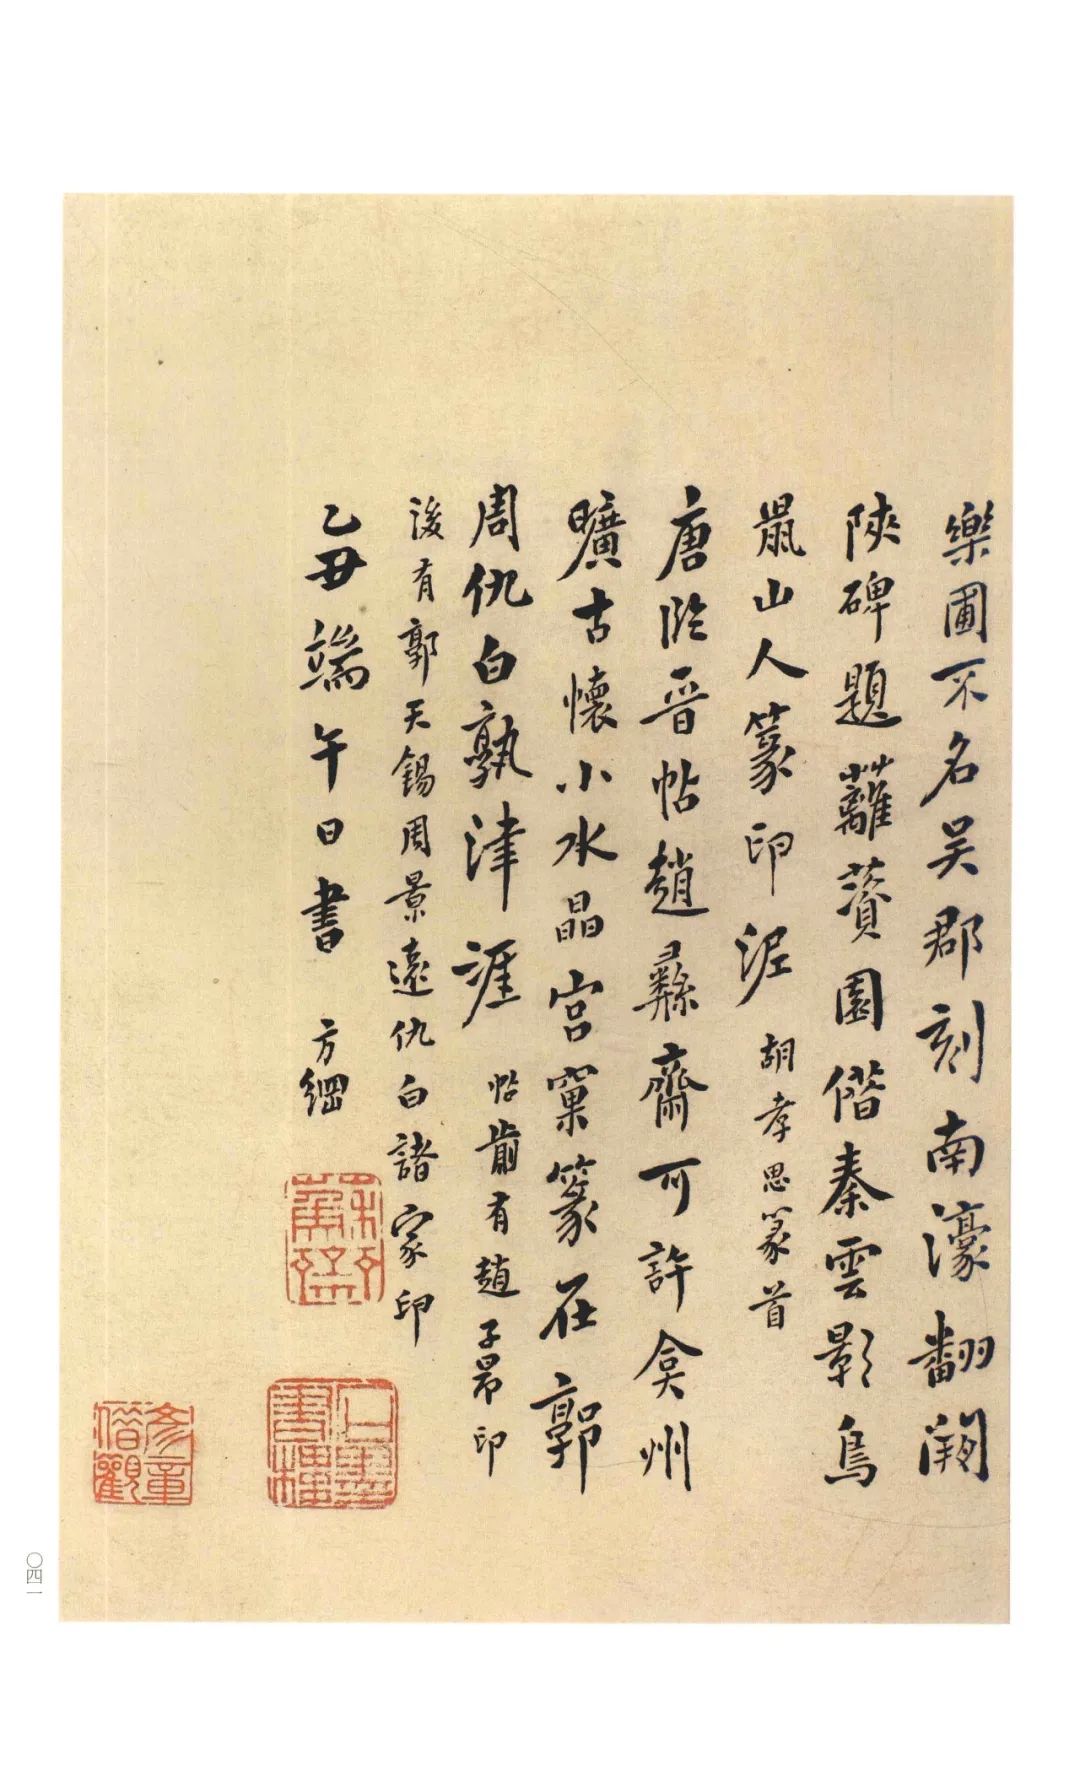 樂圃不名吳郡刻南濠翻闕
陝碑題蘺薋園偕秦雲影鳥
鼠山人篆印泥 胡孝思篆首
唐臨晉帖趙彝齋可許弇州
曠古懷小水晶宮窠篆在郭
周仇白孰津涯 帖歬有趙子昂印
後有郭天錫周景遠仇白諸家印
乙丑端午日書 方綱
蘇齋
石墨書樓
〇四一